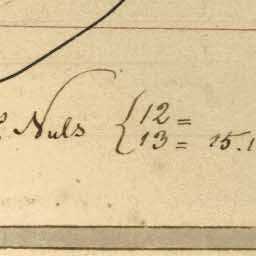 Nuls { 12 =
13 = 15.1